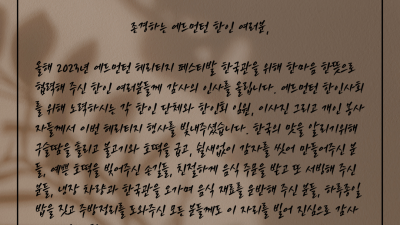 존경하는 에드먼턴 한인 여러분,
올해 2023년 에드먼턴 헤리티지 페스티발 한국관을 위해 한마음 한뜻으로
협력해 주신 한인 여러분들께 감사의 인사를 올립니다. 에드먼턴 한인사회
를 위해 노력하시는 각 한인 단체와 한인회 임원, 이사진 그리고 개인 봉사
자들께서 이번 헤리티지 행사를 빛내주셨습니다. 한국의 맛을 알리기위해
구슬땀을 흘리고 불고기와 호떡을 굽고, 쉴새없이 감자를 썰어 만들어주신 분
들, 예쁜 호떡을 빚어주신 손길들, 친절하게 음식 주문을 받고 또 서빙해 주신
분들, 냉장 차량과 한국관을 오가며 음식 재료를 운반해 주신 분들, 하루종일
밥을 짓고 주방정리를 도와주신 모든 분들께도 이 자리를 빌어 진심으로 감사